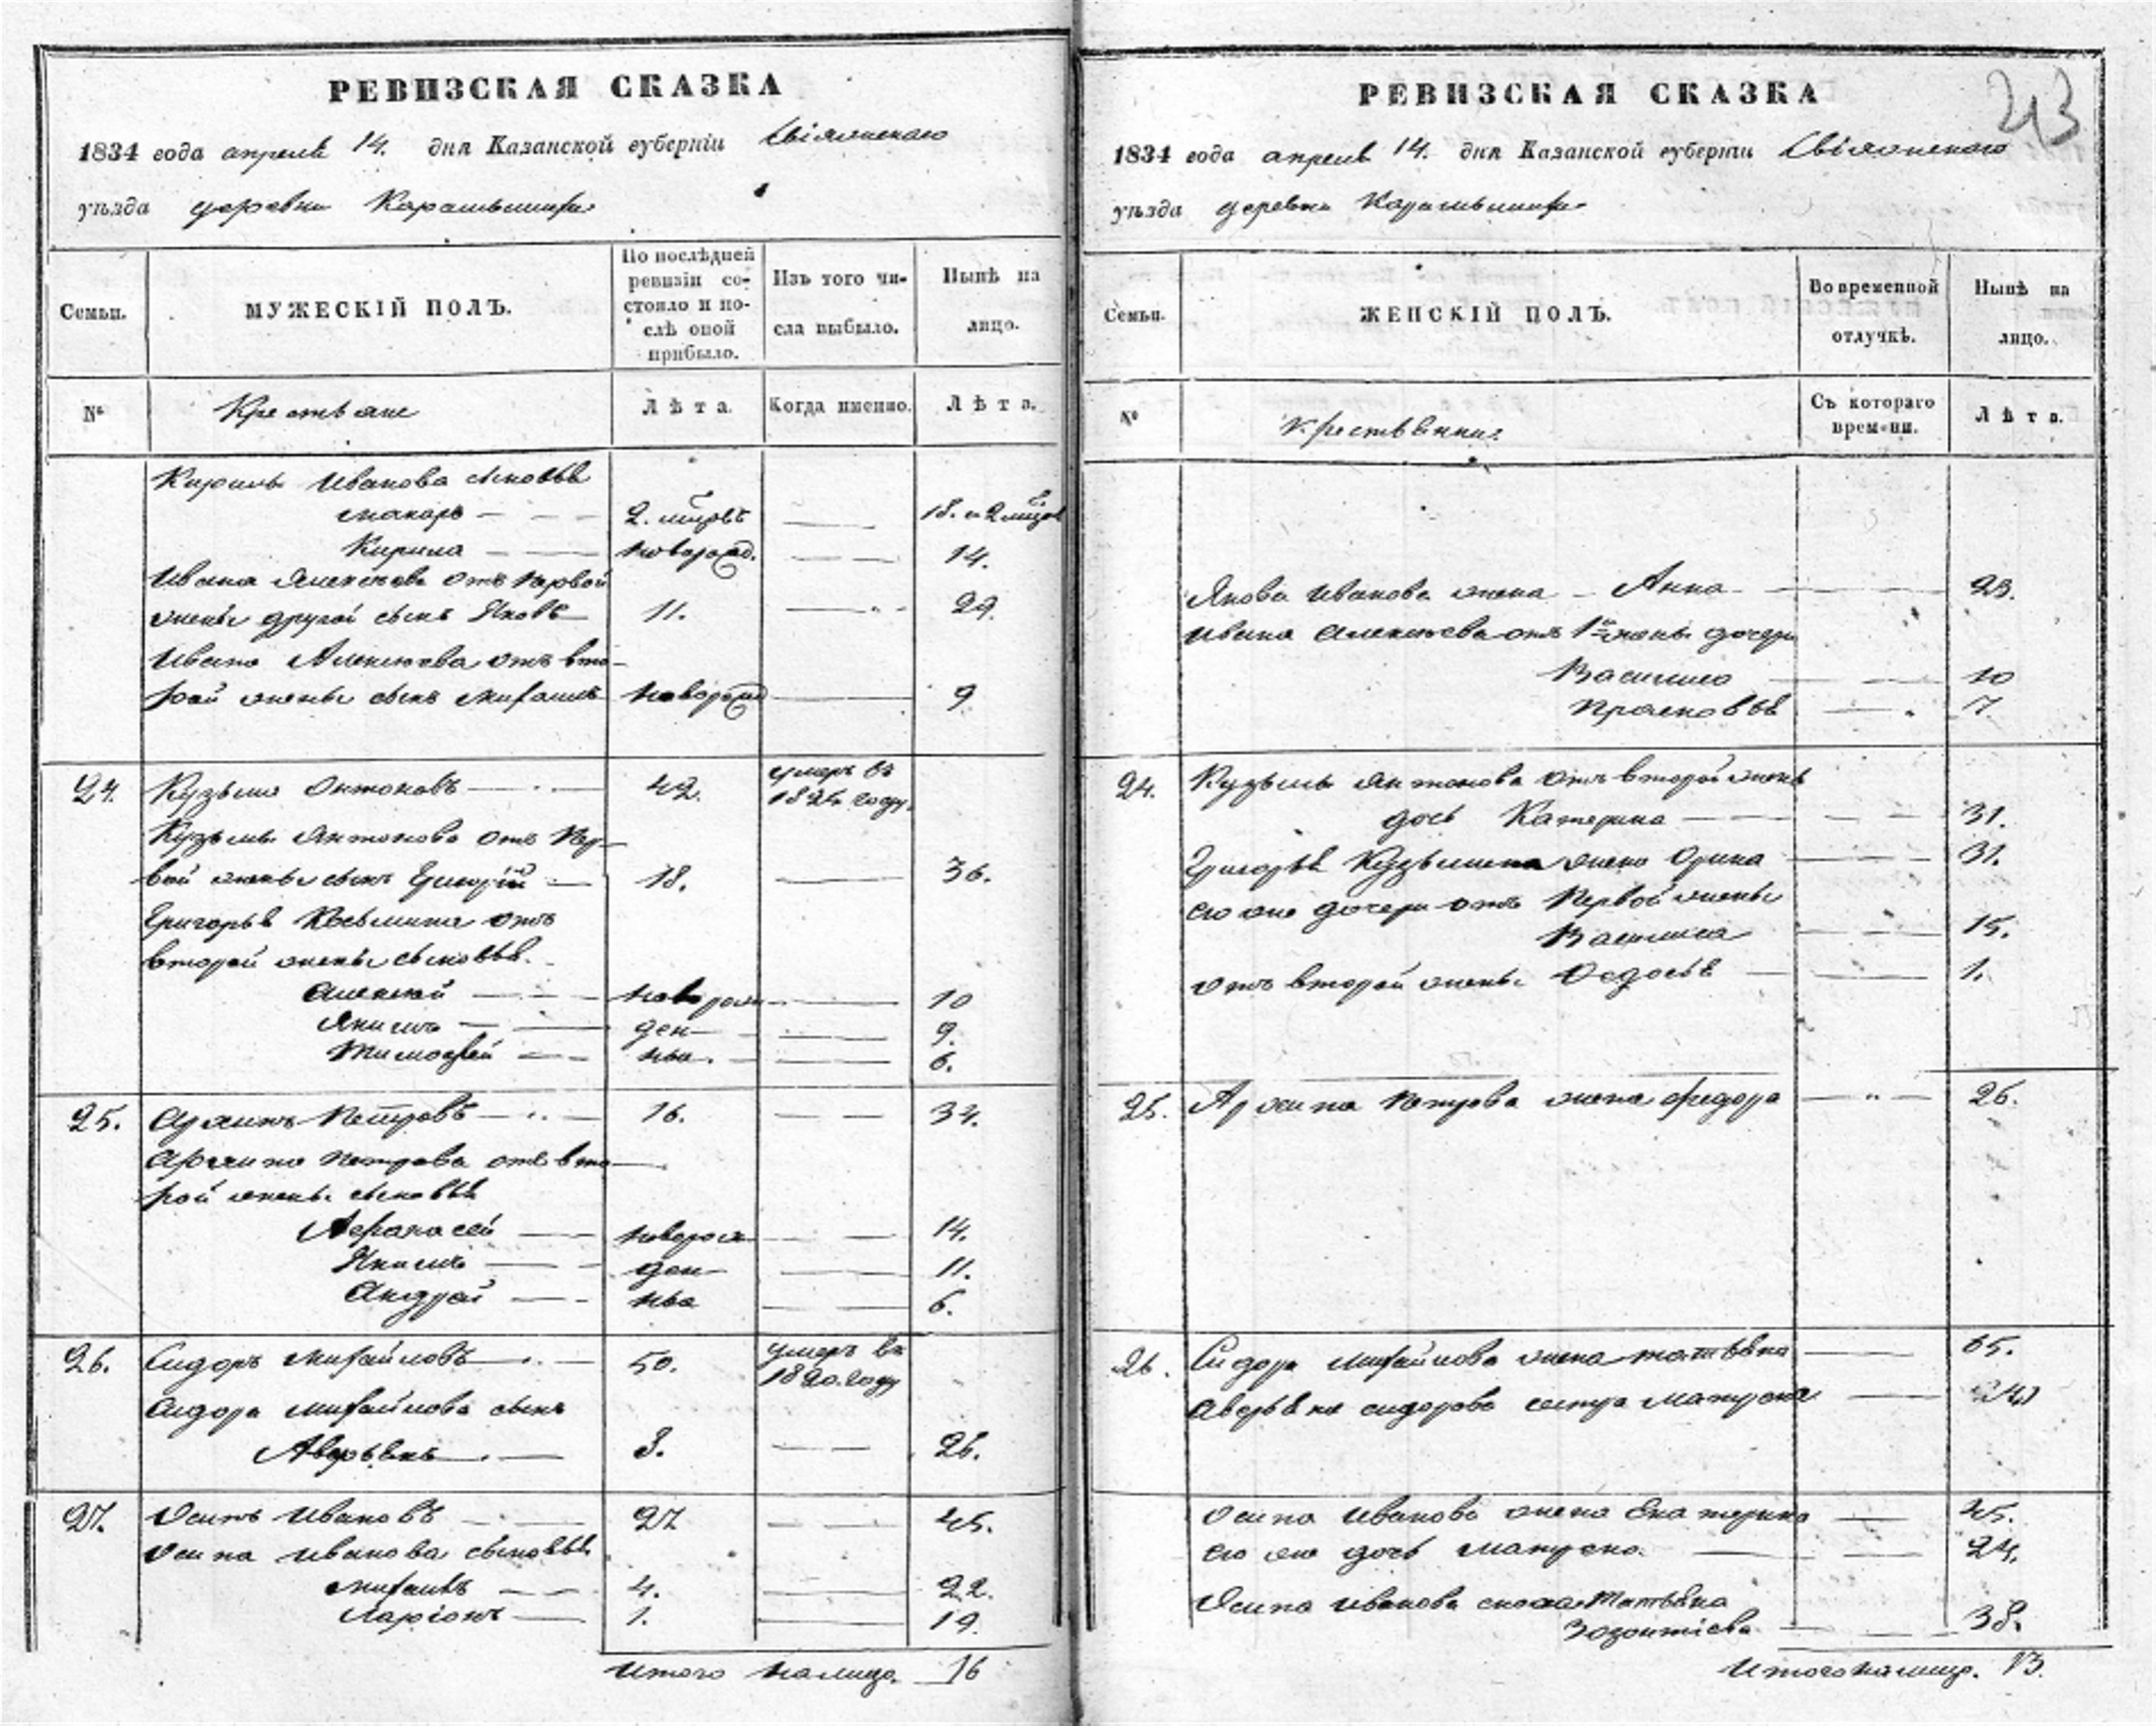 РЕВИЗСКАЯ СКАЗКА
1834 года апреля 14. дня Казанской губерніи Свіяжскаго
уѣзда деревни
Семьи.
МУЖЕСКІЙ ПОЛЪ.
По послѣдней ревизіи состояло и послѣ оной прибыло.
Изъ того числа выбыло.
Нынѣ на лицо.
№
Крестьяне
Лѣта.
Когда именно.
Лѣта.
Кирилы Иванова сыновья
Макаръ — 2. — 18. и 2
Кирила — новорожд. — 14.
Ивана Алексѣева отъ первой
жены другой сынъ Яковъ 11. — 29.
Ивана Алексѣева отъ вто-
рой жены сынъ Михаилъ новорожд — 9
24. Кузьма Онтоновъ — 42. умеръ въ 182 году.
Кузьмы Антонова отъ пер-
вой жены сынъ Григорій — 18. — 36.
Григорья Козьмина отъ
второй жены сыновья.
Алексѣй — новорож — 10
Якимъ — ден — 9.
Тимофей — ныи. — 6.
25. Архипъ Петровъ — 16. — 34.
Архипа Петрова отъ вто-
рой жены сыновья
Афанасей — новорож — 14.
Якимъ — ден — 11.
Андрей — ныи — 6.
26. Сидоръ Михайловъ — 50. умеръ въ 1820. году
Сидора Михайлова сынъ
Аверьянъ — 8. — 26.
27. Осипъ Ивановъ — 27 — 45.
Осипа Иванова сыновья
Михаилъ — 4. — 22.
Ларіонъ — 1. — 19.
Итого налицо. 16
43
РЕВИЗСКАЯ СКАЗКА
1834 года апреля 14. дня Казанской губерніи Свіяжскаго
уѣзда деревни
Семьи.
ЖЕНСКІЙ ПОЛЪ.
Во временной отлучкѣ.
Нынѣ на лицо.
№
Крестьянки
Съ котораго времени.
Лѣта.
Якова Иванова жена — Анна — 23.
Ивана Алексѣева отъ 1й жены дочери
Василиса — 10
Прасковья — 7
24. Кузьмы Антонова отъ второй жены
дочь Катерина — 31.
Григорья Кузьмина жена Орина — 31.
его же дочери отъ первой жены
Василиса — 15.
отъ второй жены Федосья — 1.
25. Архипа Петрова жена Федора — 26.
26. Сидора Михайлова жена Татьяна — 65.
Аверьяна Сидорова сестра Матрена — 24
Осипа Иванова жена Екатерина — 45.
его же дочь Матрена. — 24.
Осипа Иванова сноха Татьяна
— 38.
Итого налицо. 13.